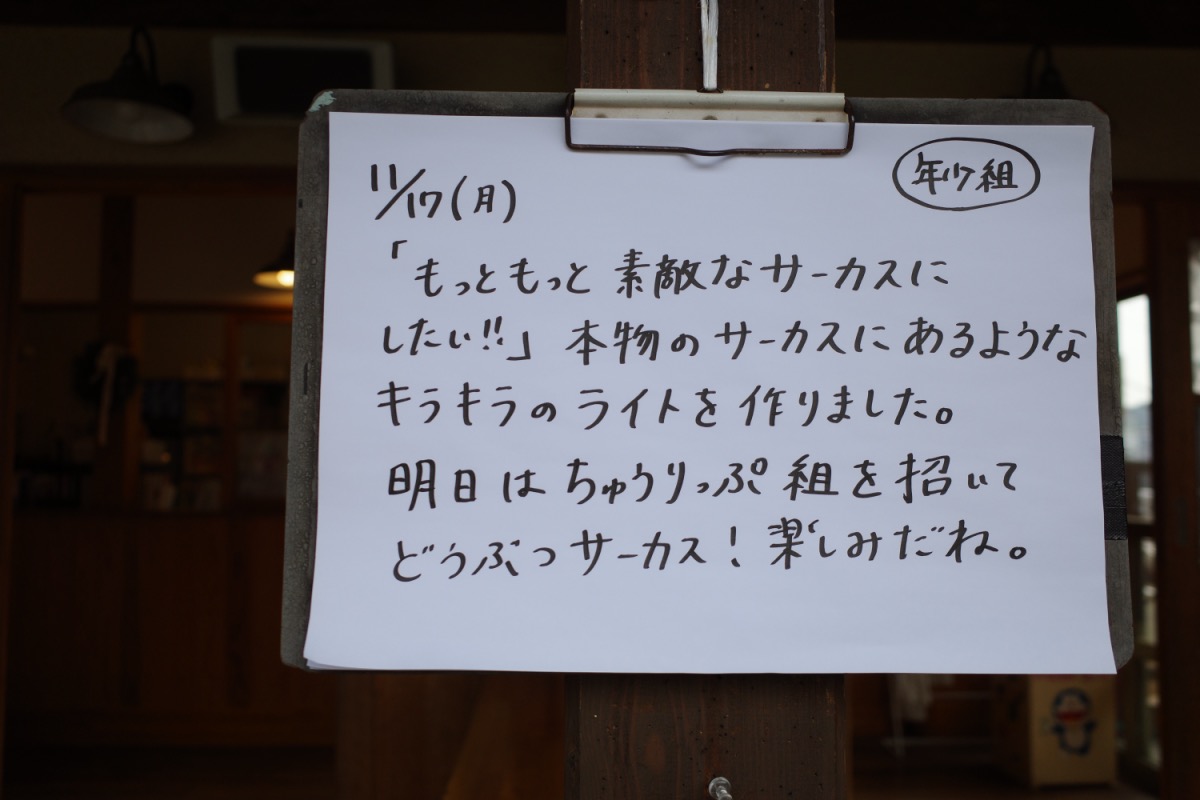 11/17(月)
年少組
「もっともっと素敵なサーカスに
したい!!」本物のサーカスにあるような
キラキラのライトを作りました。
明日はちゅうりっぷ組を招いて
どうぶつサーカス!楽しみだね。